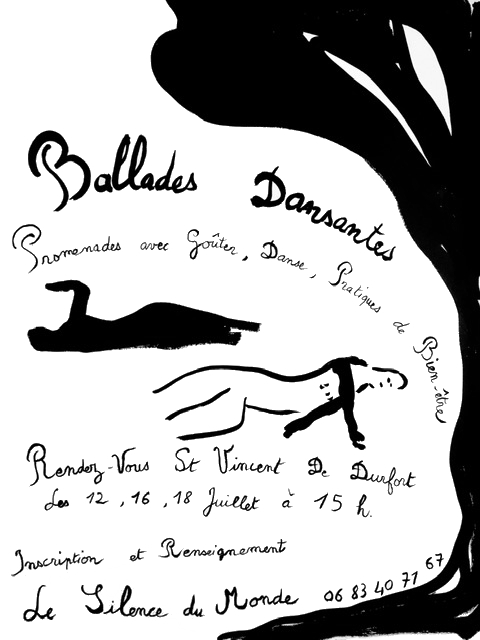 Ballades Dansantes
Promenades avec Goûter, Danse, Pratiques de Bien-être
Rendez-Vous St Vincent De Durfort
Les 12, 16, 18 Juillet à 15 h.
Inscription et Renseignement
Le Silence du Monde 06 83 40 71 67